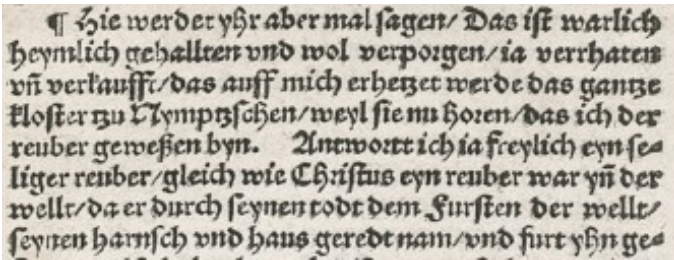 ¶ Hie werdet yhr aber mal sagen/ Das ist warlich
heymlich gehallten vnd wol verporgen/ia verrhaten
vn̄ verkaufft/das auff mich erhetzet werde das gantze
kloster tzu Nymptzschen/weyl sie nu horen/das ich der
reuber geweßen byn. Antwortt ich ia freylich eyn se⸗
liger reuber/gleich wie Christus eyn reuber war yn̄ der
wellt/da er durch seynen todt dem Fursten der wellt/
seynen harnsch vnd haus geredt nam/vnd furt yhn ge⸗